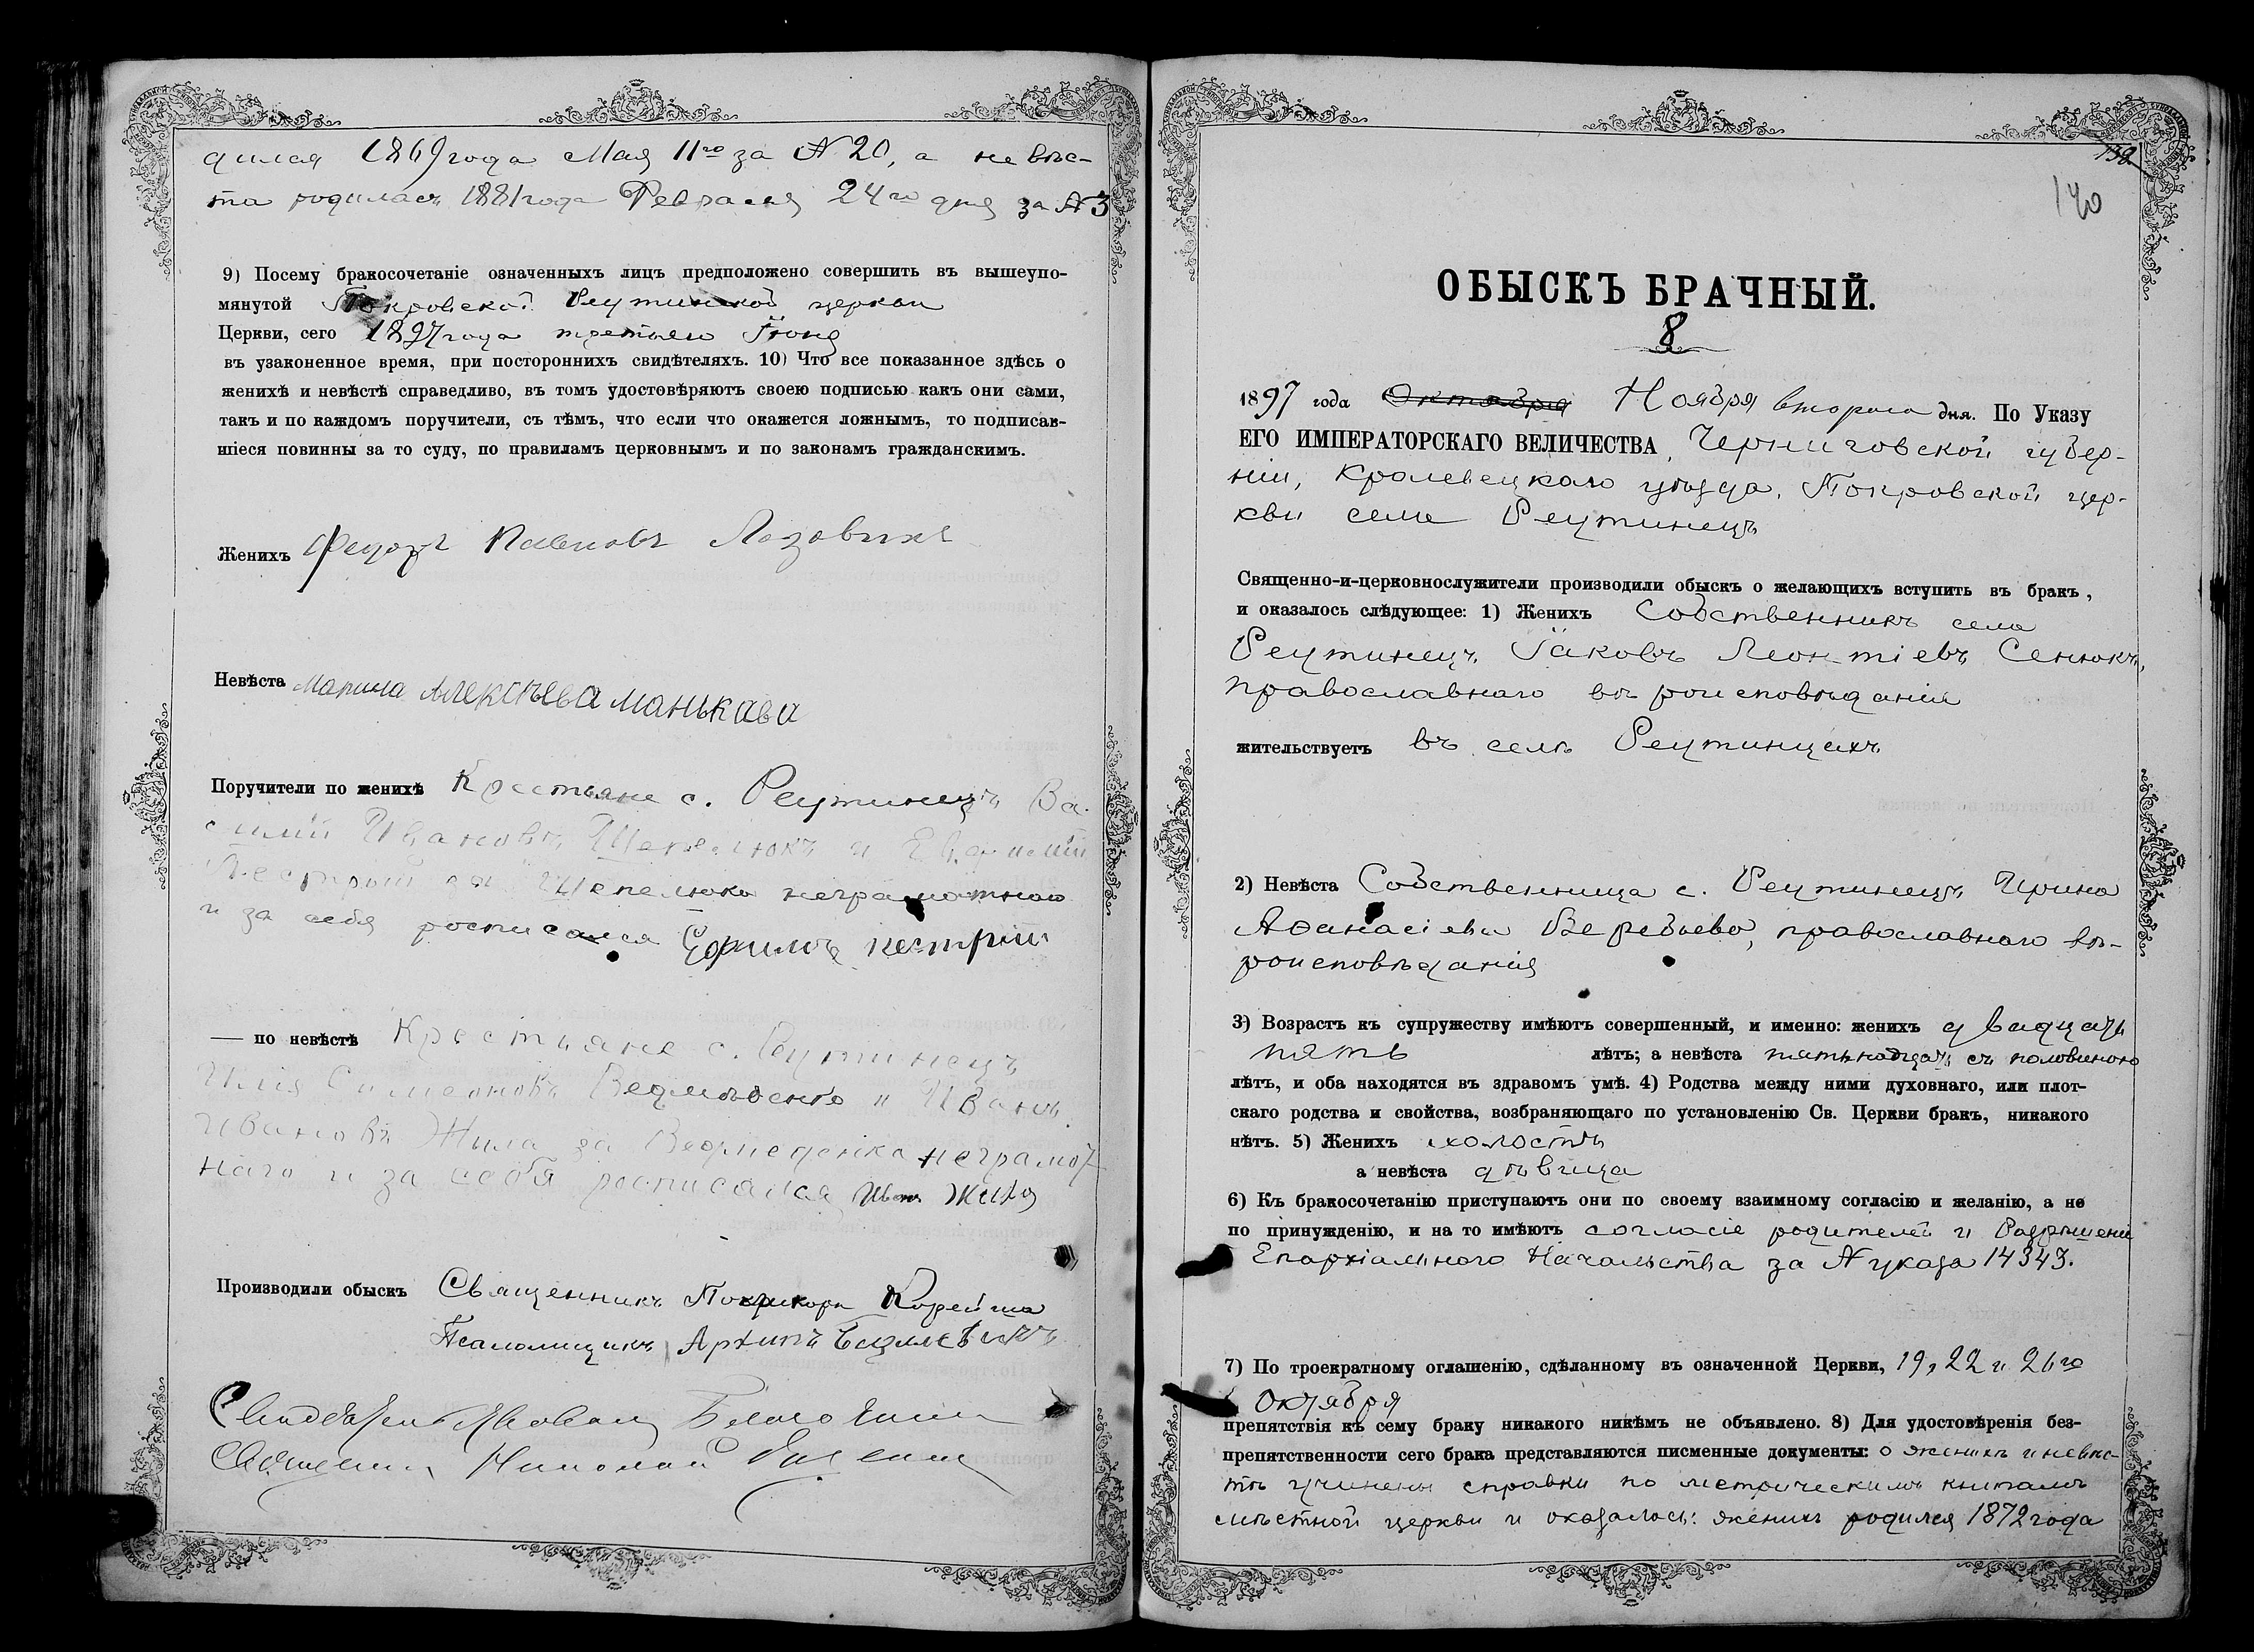 дился 1869 года Мая 11го за N 20, а невѣс-
та родилась 1881 года Февраля 24го дня за N 3
9) Посему бракосочетаніе означенныхъ лицъ предположено совершить въ вышеупо-
мянутой Покровской Реутинской церкви
Церкви, сего 1897 года третьяго Іюня
въ узаконенное время, при постороннихъ свидѣтеляхъ. 10) Что все показанное здѣсь о
женихѣ и невѣстѣ справедливо, въ томъ удостовѣряютъ своею подписью какъ они сами,
такъ и по каждомъ поручители, съ тѣмъ, что если что окажется ложнымъ, то подписав-
шіеся повинны за то суду, по правиламъ церковнымъ и по законамъ гражданскимъ.
Женихъ Федоръ Павловъ Лозовикъ
Невѣста Марина Алексѣева Манькава
Поручители по женихѣ Крестьяне с. Реутинецъ Ва-
силій Ивановъ Шепелюкъ и Евфимій
Пестрый за Шепелюка неграмотнаго
и за себя росписался Ефимъ пестрій
— по невѣстѣ Крестьяне с. Реутинецъ
Илія Симеоновъ и Иванъ
Ивановъ Жила за неграмот-
наго и за себя росписался Иван Жила
Производили обыскъ Священникъ
Псаломщикъ Архипъ
Священникъ Николай
ОБЫСКЪ БРАЧНЫЙ.
8
132
140
1897 года Октября Ноября второго дня. По Указу
ЕГО ИМПЕРАТОРСКАГО ВЕЛИЧЕСТВА, Черниговской губер-
ніи, Кролевецкаго уѣзда, Покровской цер-
кви села Реутинецъ
Священно-и-церковнослужители производили обыскъ о желающихъ вступить въ бракъ,
и оказалось слѣдующее: 1) Женихъ Собственникъ села
Реутинецъ Іаковъ Леонтіевъ Сенюкъ,
православнаго вѣроисповѣданія
жительствуетъ въ селѣ Реутинцахъ
2) Невѣста Собственница с. Реутинецъ Ирина
Аѳанасіева Веребьева, православнаго вѣ-
роисповѣданія
3) Возрастъ къ супружеству имѣютъ совершенный, и именно: женихъ двадцать
пять лѣтъ; а невѣста пятьнадцать съ половиною
лѣтъ, и оба находятся въ здравомъ умѣ. 4) Родства между ними духовнаго, или плот-
скаго родства и свойства, возбраняющаго по установленію Св. Церкви бракъ, никакого
нѣтъ. 5) Женихъ холостъ
а невѣста дѣвица
6) Къ бракосочетанію приступаютъ они по своему взаимному согласію и желанію, а не
по принужденію, и на то имѣютъ согласіе родителей и Разрѣшеніе
Епархіальнаго Начальства за N указа 14343.
7) По троекратному оглашенію, сдѣланному въ означенной Церкви, 19, 22 и 26го
Октября
препятствія къ сему браку никакого никѣмъ не объявлено. 8) Для удостовѣренія без-
препятственности сего брака представляются писменные документы: о женихѣ и невѣс-
тѣ учинены справки по метрическимъ книгамъ
мѣстной церкви и оказалось: женихъ родился 1872 года